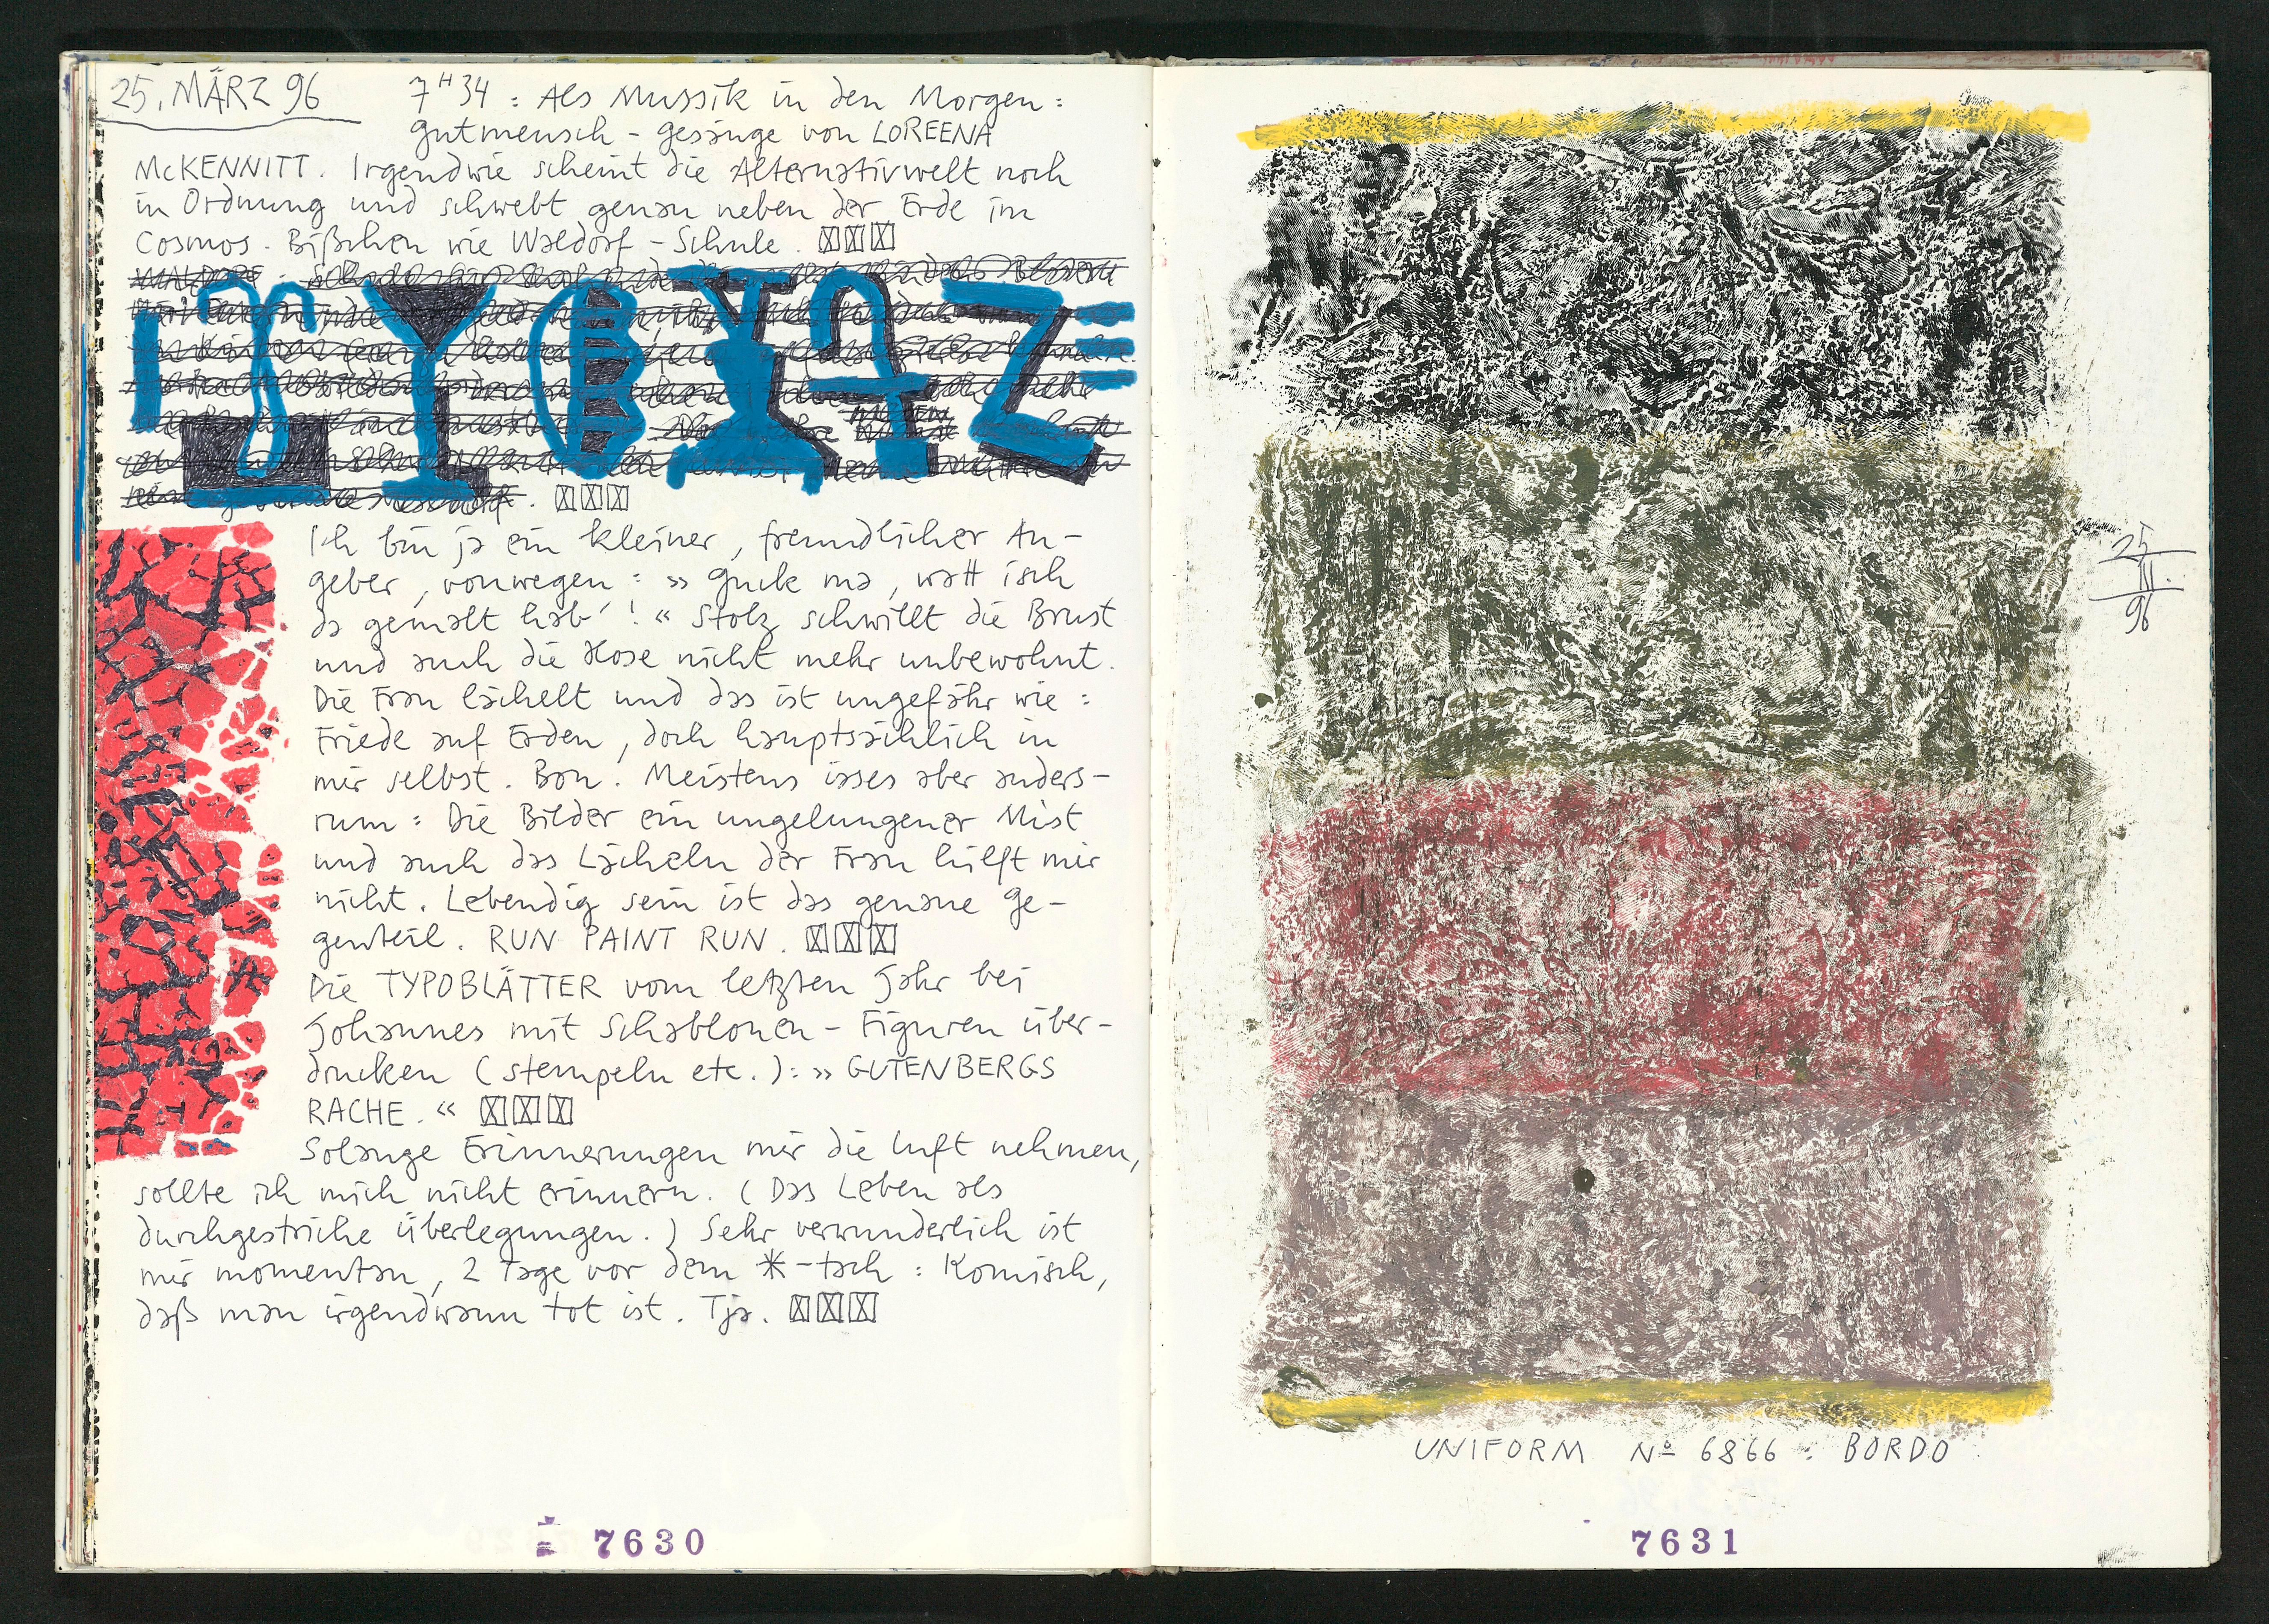 25. MÄRZ 96
7H34 : Als Mussik in den Morgen :
gutmensch - gesänge von LOREENA
McKENNITT. Irgendwie scheint die Alternativwelt noch
in Ordnung und schwebt genau neben der Erde im
Cosmos. Bißchen wie Waldorf - Schule.
Ich bin ja ein kleiner, freundlicher An-
geber, vonwegen : » Guck ma, watt isch
da gemalt hab' ! « Stolz schwillt die Brust
und auch die Hose nicht mehr unbewohnt.
Die Frau lächelt und das ist ungefähr wie :
Friede auf Erden, doch hauptsächlich in
mir selbst. Bon. Meistens isses aber anders-
rum : Die Bilder ein ungelungener Mist
und auch das Lächeln der Frau hilft mir
nicht. Lebendig sein ist das genaue Ge-
genteil. RUN PAINT RUN.
Die TYPOBLÄTTER vom letzten Jahr bei
Johannes mit Schablonen - Figuren über-
drucken (stempeln etc.) : » GUTENBERGS
RACHE. «
Solange Erinnerungen mir die Luft nehmen,
sollte ich mich nicht erinnern. (Das Leben als
durchgestriche Überlegungen.) Sehr verwunderlich ist
mir momentan, 2 Tage vor dem *-tach : Komisch,
daß man irgendwann tot ist. Tja.
7630
25
III.
96
UNIFORM No 6866 : BORDO
7631